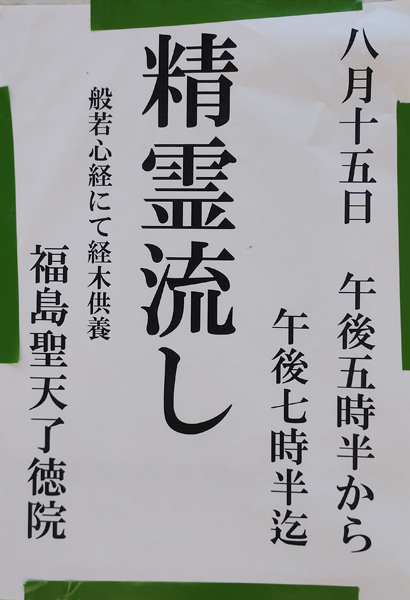 八月十五日　午後五時半から
午後七時半迄
精霊流し
般若心経にて経木供養
福島聖天了徳院